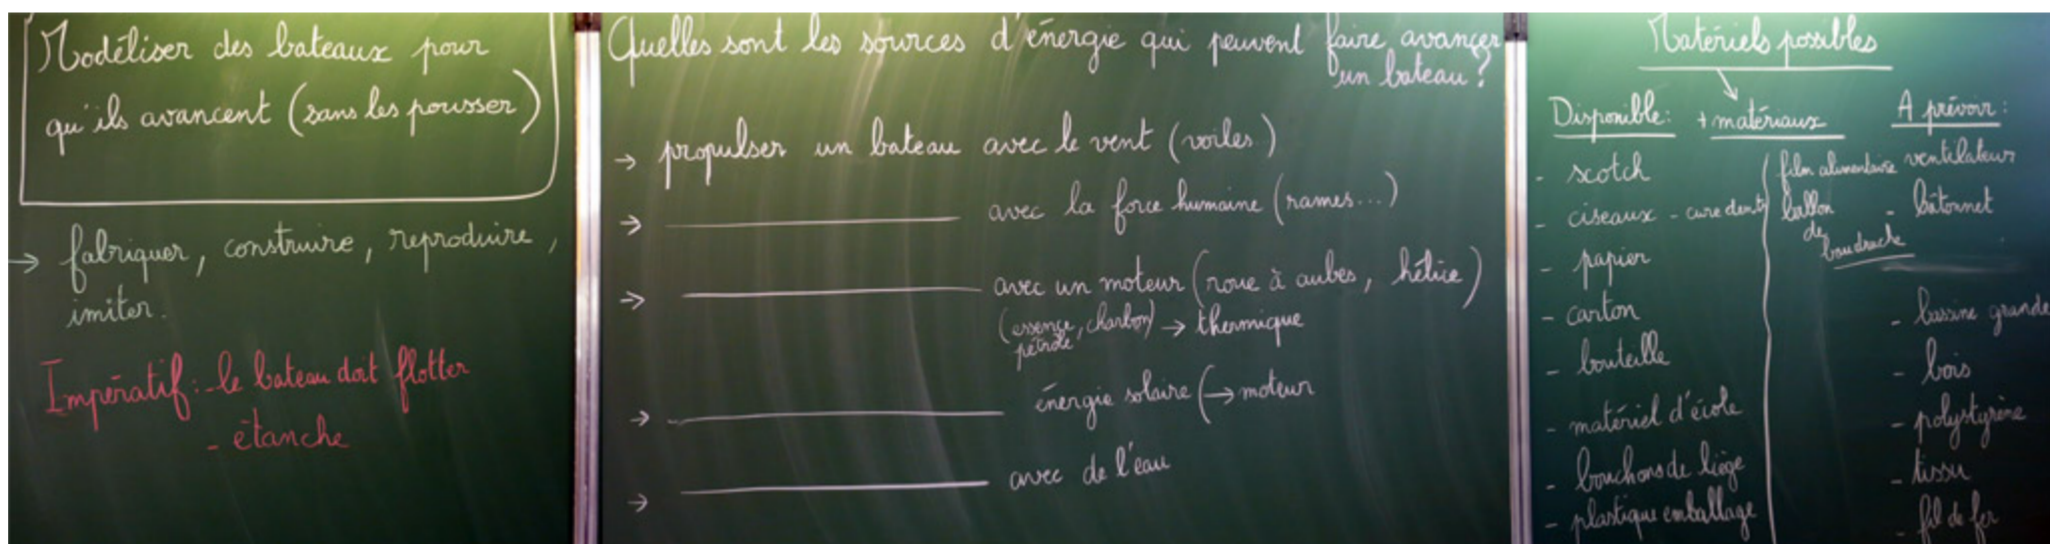 Modéliser des bateaux pour
qu'ils avancent (sans les pousser)
→ fabriquer, construire, reproduire,
imiter.
Impératif : - le bateau doit flotter
- étanche
Quelles sont les sources d'énergie qui peuvent faire avancer
un bateau ?
→ propulser un bateau avec le vent (voiles)
→ avec la force humaine (rames...)
→ avec un moteur (roue à aubes, hélice)
(essence, charbon) → thermique
pétrole
→ énergie solaire (→ moteur
→ avec de l'eau
Matériels possibles
Disponible :
- scotch
- ciseaux - cure dents
- papier
- carton
- bouteille
- matériel d'école
- bouchons de liège
- plastique emballage
+ matériaux
film alimentaire
ballon
de
baudruche
A prévoir :
ventilateur
- bâtonnet
- bassine grande
- bois
- polystyrène
- tissu
- fil de fer